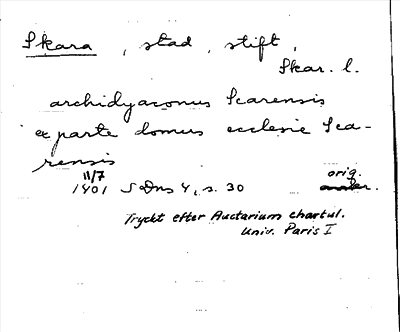 Skara, stad, stift,
Skar. l.
archidyaconus Scarensis
ex parte domus ecclesie Sca-
rensis
11/7 orig.
1401 SDns 4, s. 30
Tryckt efter Auctarium chartul.
Univ. Paris I